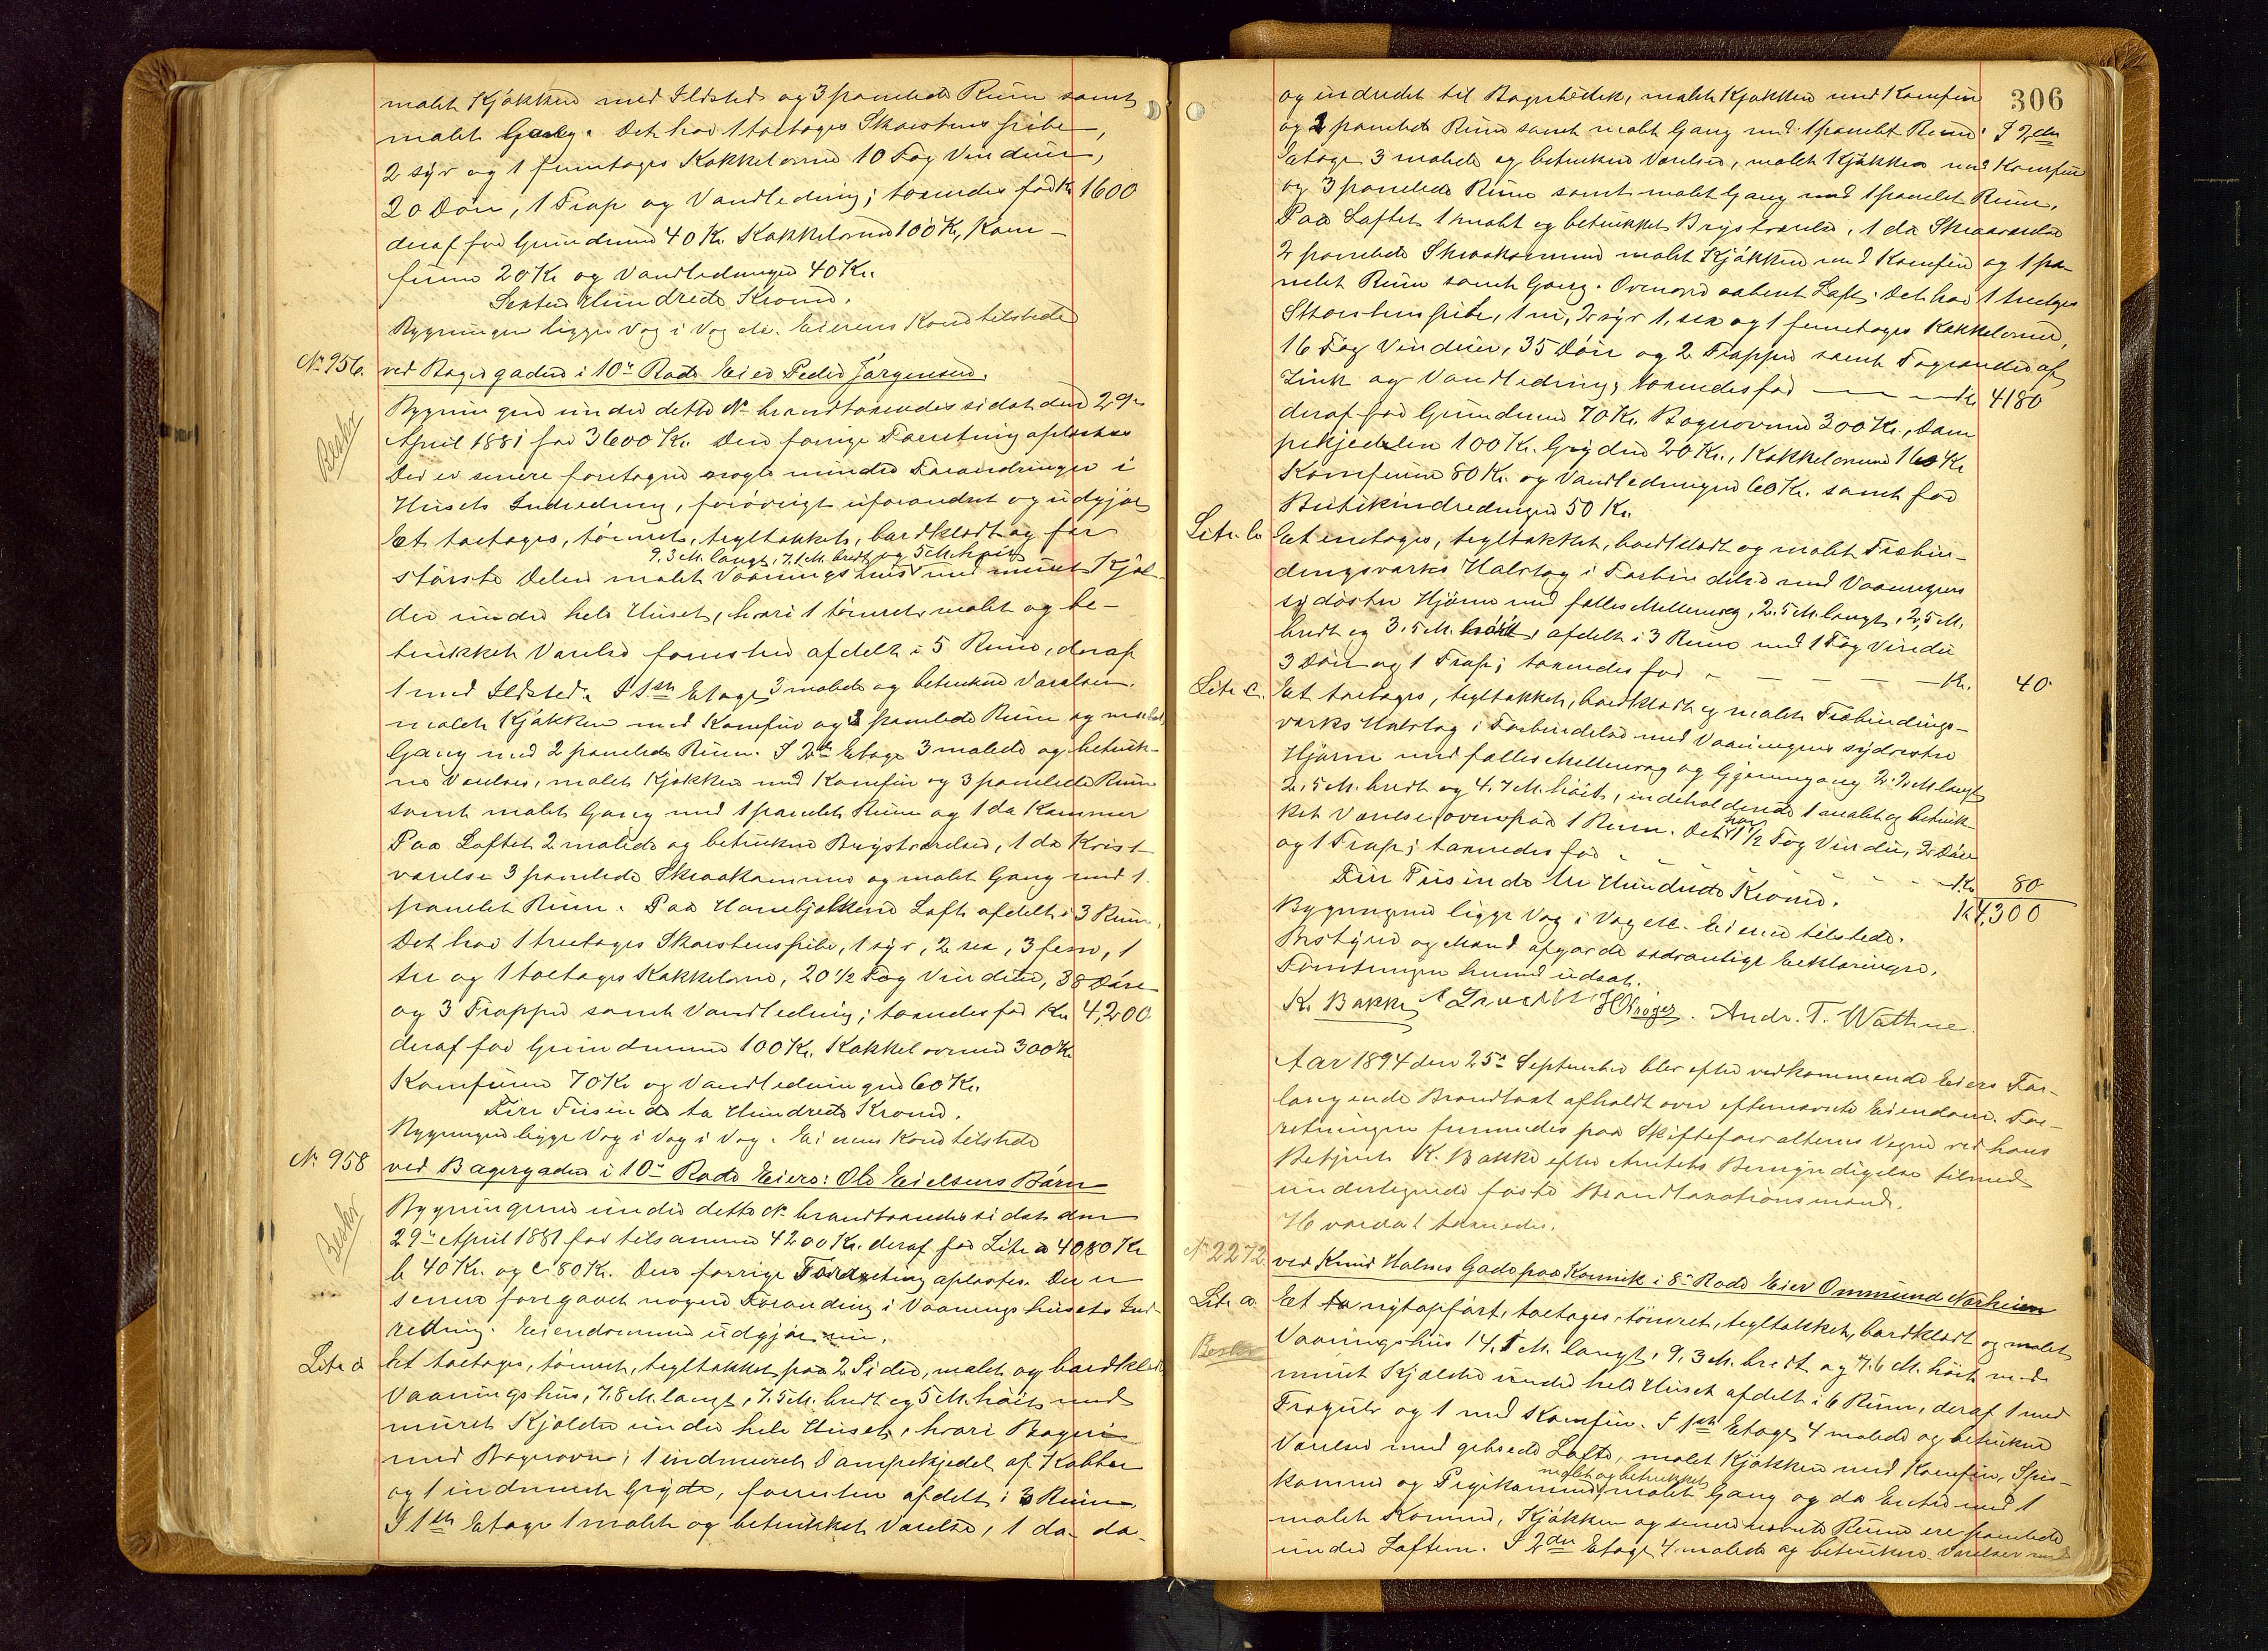 malet Kjøkken med Ildsted og 3 panelede Rum samt
malet Gang. Det har 1 toetages Skorstenspibe,
2 syv og 1 femetages Kakkelovne 10 Fag Vinduer,
20 Døre, 1 Trap og Vandledning; taxeredes for Kr. 1600
deraf for Grundmur 40 Kr. Kakkelovne 100 Kr, Kom-
furene 20 Kr og Vandledningen 40 Kr.
Sexten Hundrede Kroner.
Bygningen ligger Væg i Væg etc. Eierens Kone tilstede
No 956. ved Bagergaden i 10de Rode Eier Peder Jørgensen.
Bygningen under dette No brandtaxeredes sidst den 29de
Bester
April 1881 for 3600 Kr. Den forrige Forretning oplæstes
Der er senere foretagne nogle mindre Forandringer i
Husets Indredning, forøvrigt uforandret og udgjør
Et toetages, tømret, tegltækket, bordklædt og for
9,3 M. langt, 7,1 M. bredt og 5 M. høit
største Delen malet Vaaningshus med muret Kjæl-
der under hele Huset, hvori 1 tømret, malet og be-
trukket Værelse forresten afdelt i 5 Rum, deraf
1 med Ildsted. I 1ste Etage 3 malede og betrukne Værelser.
malet Kjøkken med Komfur og 3 panelede Rum og malet
Gang med 2 panelede Rum. I 2den Etage 3 malede og betruk-
ne Værelser, malet Kjøkken med Komfur og 3 panelede Rum
samt malet Gang med 1 panelet Rum og 1 do Kammer
Paa Loftet 2 malede og betrukne Brystværelser, 1 do Kvist-
værelse 3 panelede Skraakamre og malet Gang med 1
panelet Rum. Paa Hanebjælkene Loft afdelt i 3 Rum.
Det har 1 treetages Skorstenspibe, 1 syv, 2 sex, 3 fem, 1
tre og 1 toetages Kakkelovne, 20 1/2 Fag Vinduer, 38 Døre
og 3 Trapper samt Vandledning; taxeredes for Kr. 4,200
deraf for Grundmuren 100 Kr. Kakkelovnene 300 Kr
Komfurene 70 Kr og Vandledningen 60 Kr.
Fire Tusinde to Hundrede Kroner.
Bygningen ligger Væg i Væg i Væg. Eierens Kone tilstede
No 958 ved Bagergaden i 10de Rode Eiere: Ole Eielsens Børn
Bygningerne under dette No brandtaxeredes sidst den
Bester
29de April 1881 for tilsammen 4200 Kr. deraf for Litr a 4080 Kr
b 40 Kr. og c 80 Kr. Den forrige Forretning oplæstes. Der er
senere foregaaet nogen Forandring i Vaaningshusets Ind-
redning. Eiendommen udgjør nu.
Litr a Et toetages, tømret, tegltækket paa 2 Sider, malet og bordklædt
Vaaningshus, 7,8 M. langt, 7,5 M. bredt og 5 M. høit med
muret Kjælder under hele Huset, hvori Bageri
med Bagerovn, 1 indmuret Dampekjedel af Kobber
og 1 indmuret Gryde, forresten afdelt i 3 Rum
I 1ste Etage 1 malet og betrukket Værelse, 1 do do
306
og indredet til Bagerbutik, malet Kjøkken med Komfur
og 2 panelede Rum samt malet Gang med 1 panelet Rum. I 2den
Etage 3 malede og betrukne Værelser, malet Kjøkken med Komfur
og 3 panelede Rum samt malet Gang med 1 panelet Rum.
Paa Loftet 1 malet og betrukket Brystværelse, 1 do Skraaværelse
2 panelede Skraakammer malet Kjøkken med Komfur og 1 pa-
nelet Rum samt Gang. Ovenover aabent Loft. Det har 1 treetages
Skorstenspibe, 1 ni, 2 syv 1, sex og 1 femetages Kakkelovne,
16 Fag Vinduer, 35 Døre og 2 Trapper samt Tagrender af
Zink og Vandledning, taxeredes for Kr 4180
deraf for Grundmur 70 Kr. Bagerovnen 300 Kr., Dam
pekjedelen 100 Kr. Gryden 20 Kr., Kakkelovnene 160 Kr
Komfurene 80 Kr. og Vandledningen 60 Kr. samt for
Butikindredningen 50 Kr.
Litr. b Et enetages, tegltækket, bordklædt og malet Træbin-
dingsværks Halvtag i Forbindelse med Vaaningens
sydøstre Hjørne med fælles Mellemvæg, 2,5 M. langt, 2,5 M.
bredt og 3,5 M. høit, afdelt i 3 Rum med 1 Fag Vindu
3 Døre og 1 Trap; taxeredes for Kr. 40
Litr c. Et toetages, tegltækket, bordklædt og malet Træbindings-
værks Halvtag i Forbindelse med Vaaningens sydvestre
Hjørne med fælles Mellemvæg og Gjennemgang 2,2 M. langt
2,5 M. bredt og 4,7 M. høit, indeholdende 1 malet og betruk-
ket Værelse ovenpaa 1 Rum. Det har 1 1/2 Fag Vindu, 2 Døre
og 1 Trap; taxeredes for Kr 80
Fire Tusinde tre Hundrede Kroner. Kr 4,300
Bygningerne ligger Væg i Væg etc. Eierne tilstede.
Bestyrer og Mænd afgav de sædvanlige Erklæringer.
Forretningen hermed udsat.
K. Bakke Andr. T. Wathne.
Aar 1894 den 25de September blev efter vedkommende Eiers For-
langende Brandtaxt afholdt over efternævnte Eiendom. For-
retningen fremmedes paa Skifteforvalterens Vegne ved hans
Betjent K. Bakke efter Amtets Bemyndigelse tilmed
undertegnede faste Brandtaxationsmænd.
Hvorda[ taxeredes.
No 2272. ved Knud Holms Gade paa Kornik i 8de Rode Eier Ommund Nærheim
Litr a. Et to nyt opført, toetages, tømret, tegltækket, bordklædt og malet
Bester
Vaaningshus 14,5 M. langt, 9,3 M. bredt og 7,6 M. høit med
muret Kjælder under hele Huset afdelt i 6 Rum, deraf 1 med
Trægulv og 1 med Komfur. I 1ste Etage 4 malede og betrukne
Værelser med gibsede Lofte, malet Kjøkken med Komfur, Spis-
malet og betrukket
kammer og Pigekammer, malet Gang og do Entre med 1
malet Kammer, Kjøkken og senere nævnte Rum ere panelede
under Loftene. I 2den Etage 4 malede og betrukne Værelser med